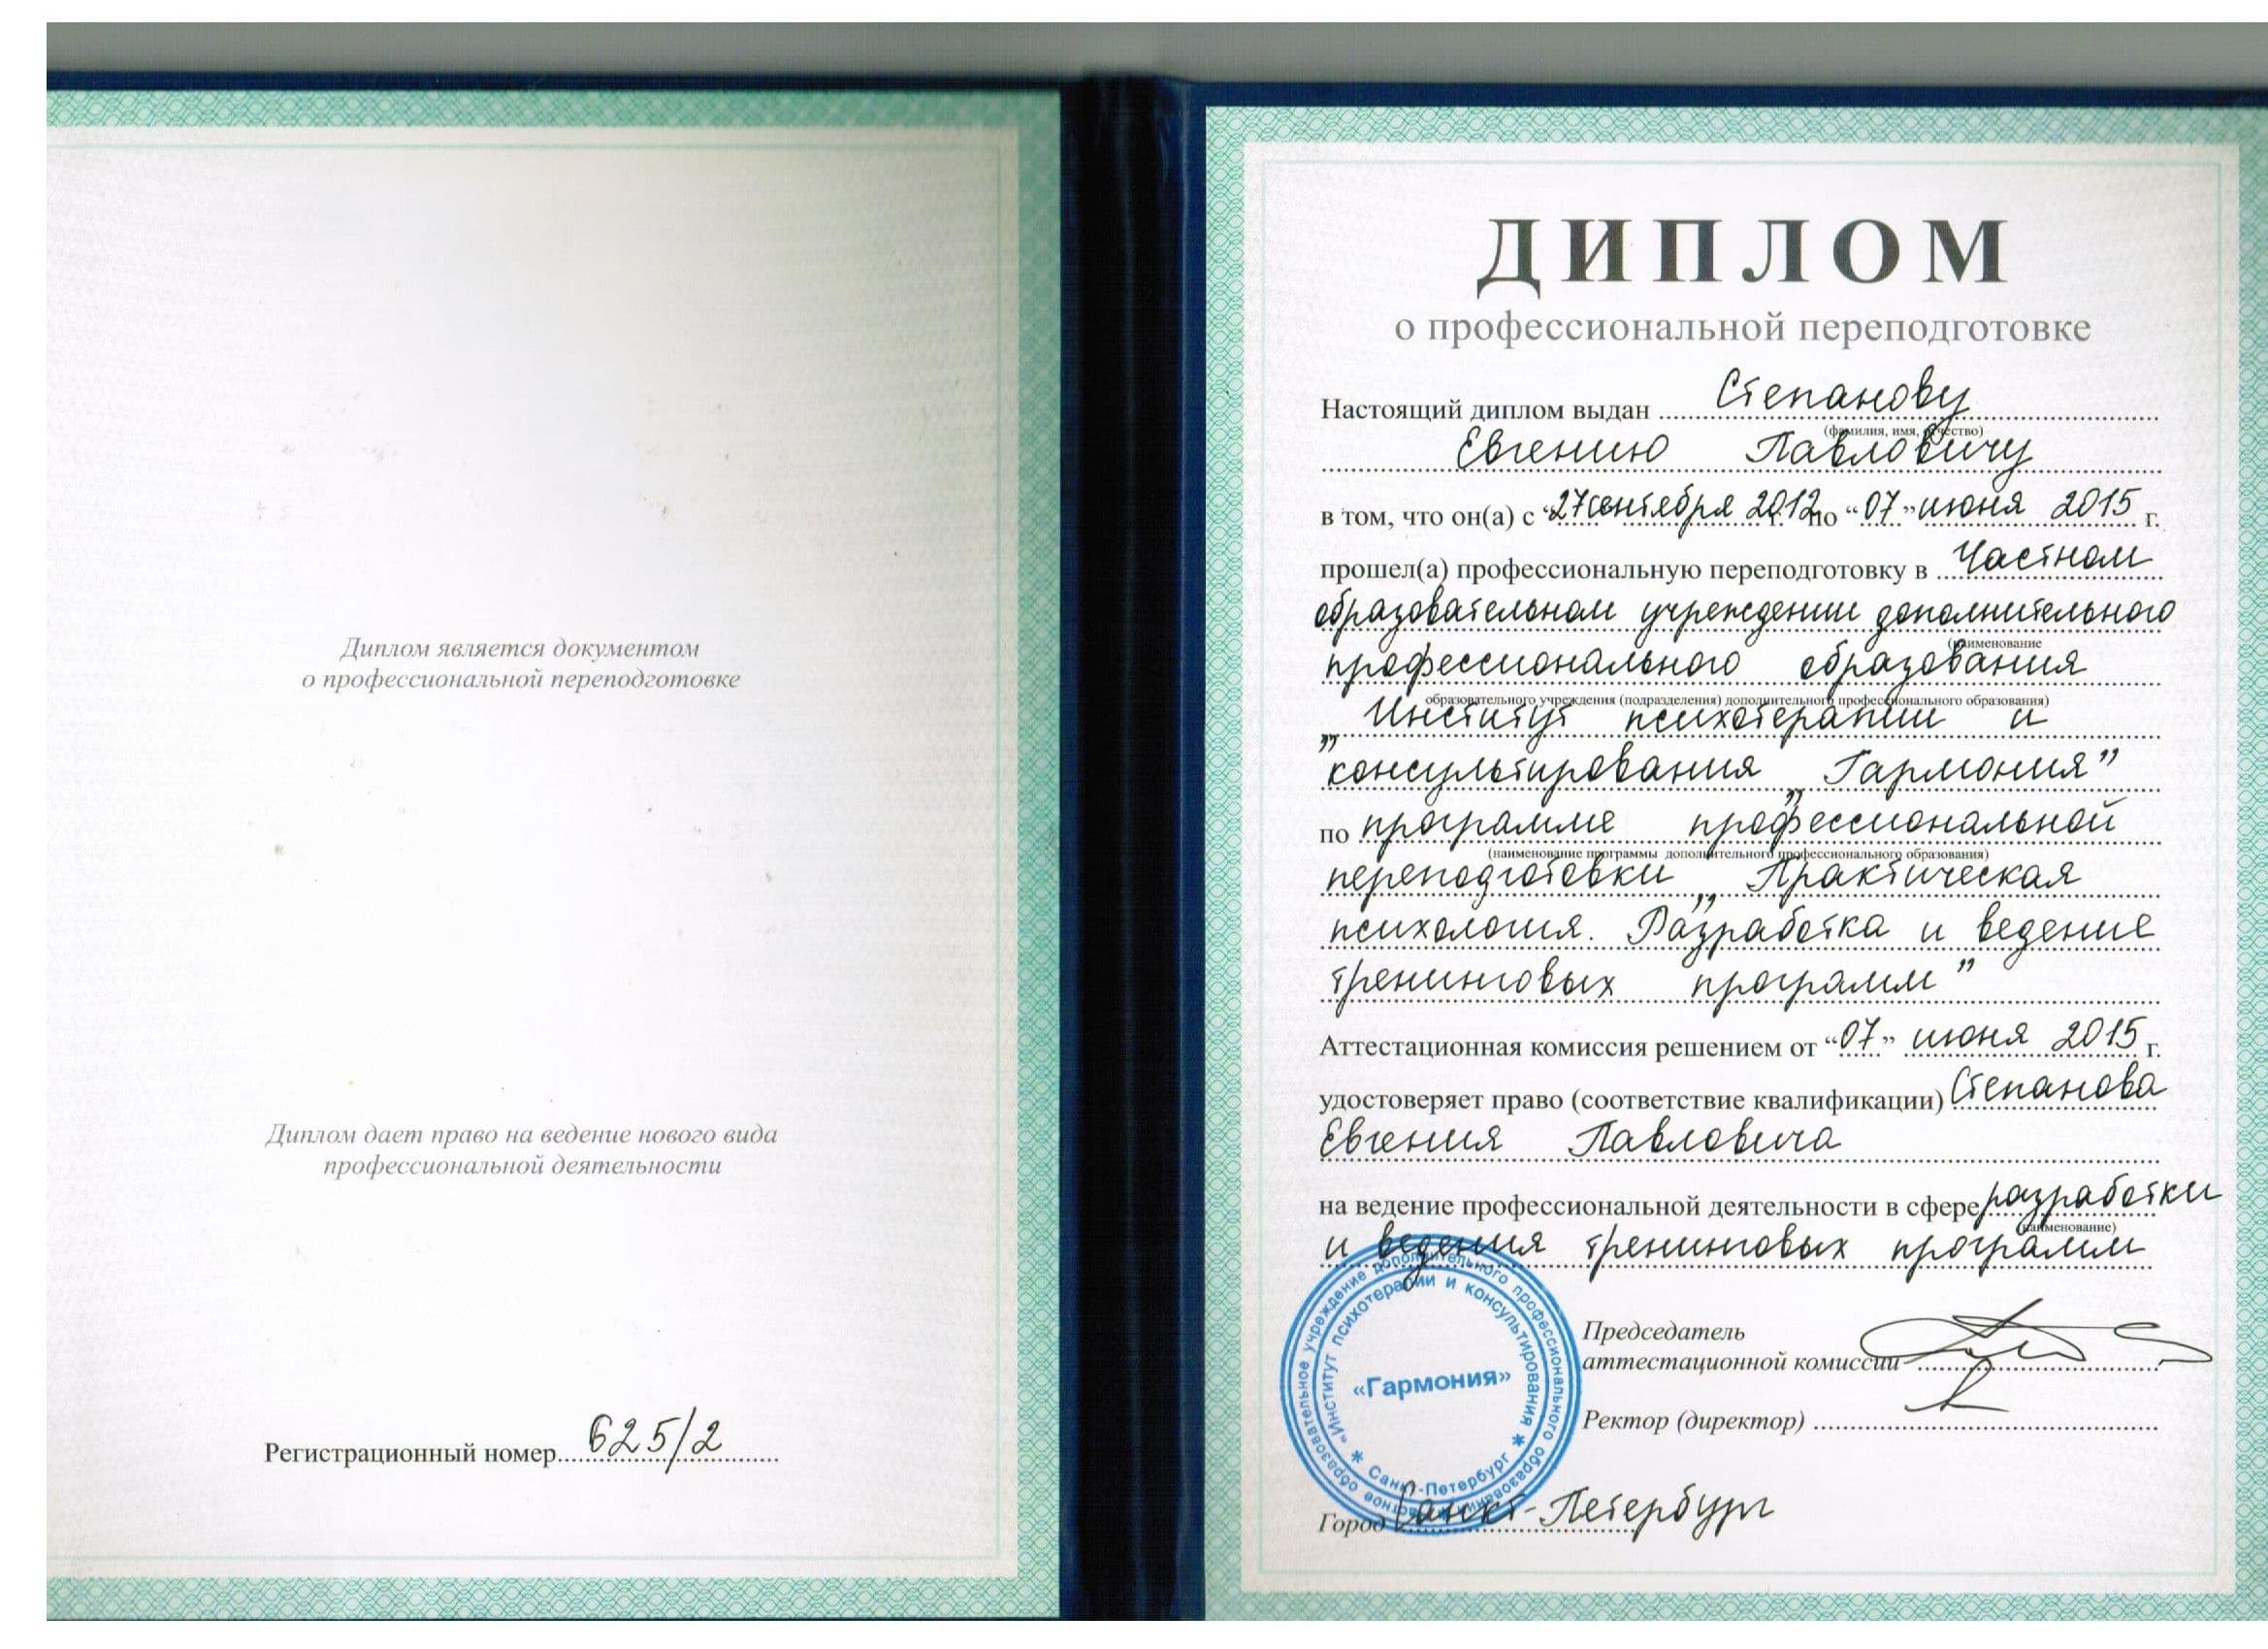 Диплом является документом
о профессиональной переподготовке
Диплом дает право на ведение нового вида
профессиональной деятельности
Регистрационный номер 625/2
ДИПЛОМ
о профессиональной переподготовке
Настоящий диплом выдан Степанову
(фамилия, имя, отчество)
Евгению Павловичу
в том, что он(а) с “27 сентября 2012 г. по “07” июня 2015 г.
прошел(а) профессиональную переподготовку в Частном
образовательном учреждении дополнительного
(наименование
профессионального образования
образовательного учреждения (подразделения) дополнительного профессионального образования)
„Институт психотерапии и
консультирования „Гармония”
по программе профессиональной
(наименование программы дополнительного профессионального образования)
переподготовки „Практическая
психология. Разработка и ведение
тренинговых программ”
Аттестационная комиссия решением от “07” июня 2015 г.
удостоверяет право (соответствие квалификации) Степанова
Евгения Павловича
на ведение профессиональной деятельности в сфере разработки
(наименование)
и ведения тренинговых программ
Председатель
аттестационной комиссии
Ректор (директор)
Город Санкт-Петербург
Частное образовательное учреждение дополнительного профессионального образования
«Институт психотерапии и консультирования
«Гармония»
* Санкт-Петербург *